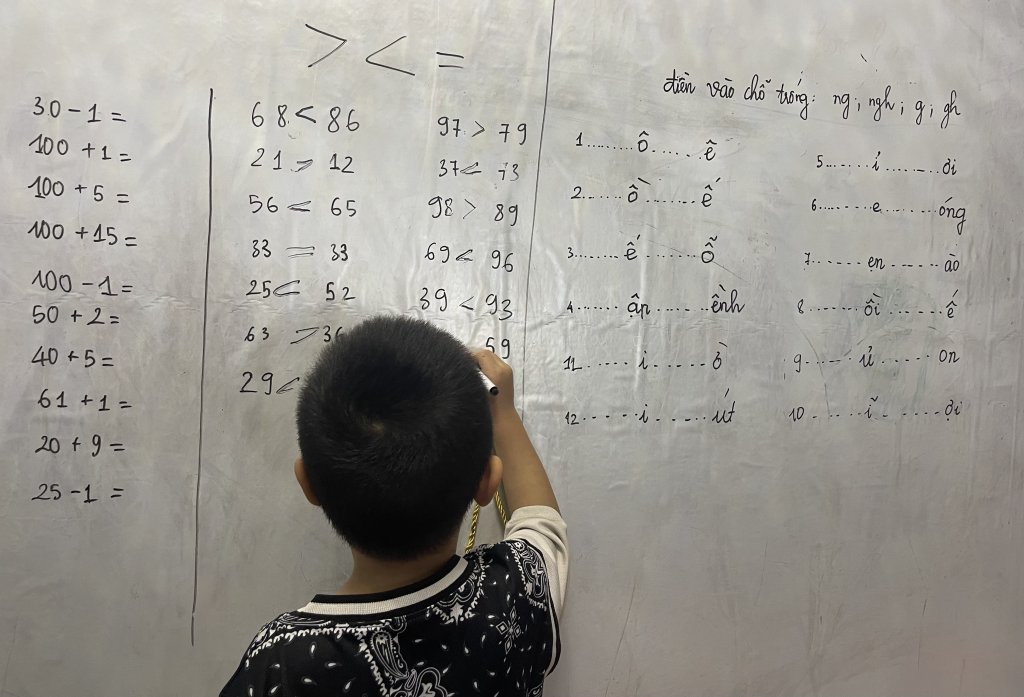 > < =
30 - 1 =
100 + 1 =
100 + 5 =
100 + 15 =
100 - 1 =
50 + 2 =
40 + 5 =
61 + 1 =
20 + 9 =
25 - 1 =
68 < 86
21 > 12
56 < 65
33 = 33
25 < 52
63 > 36
29 <
97 > 79
37 < 73
98 > 89
69 < 96
39 < 93
59
điền vào chỗ trống: ng; ngh; g; gh
1.........ô.......ê
2.......ồ........ế
3.......ế.......ỗ
4.......ập.......ềnh
11.......i.......ờ
12.......i.......út
5.......ỉ........ơi
6.........e........óng
7.......en.......ào
8.......ồi.......ế
9.......ủ.......on
10.......ĩ.......ợi